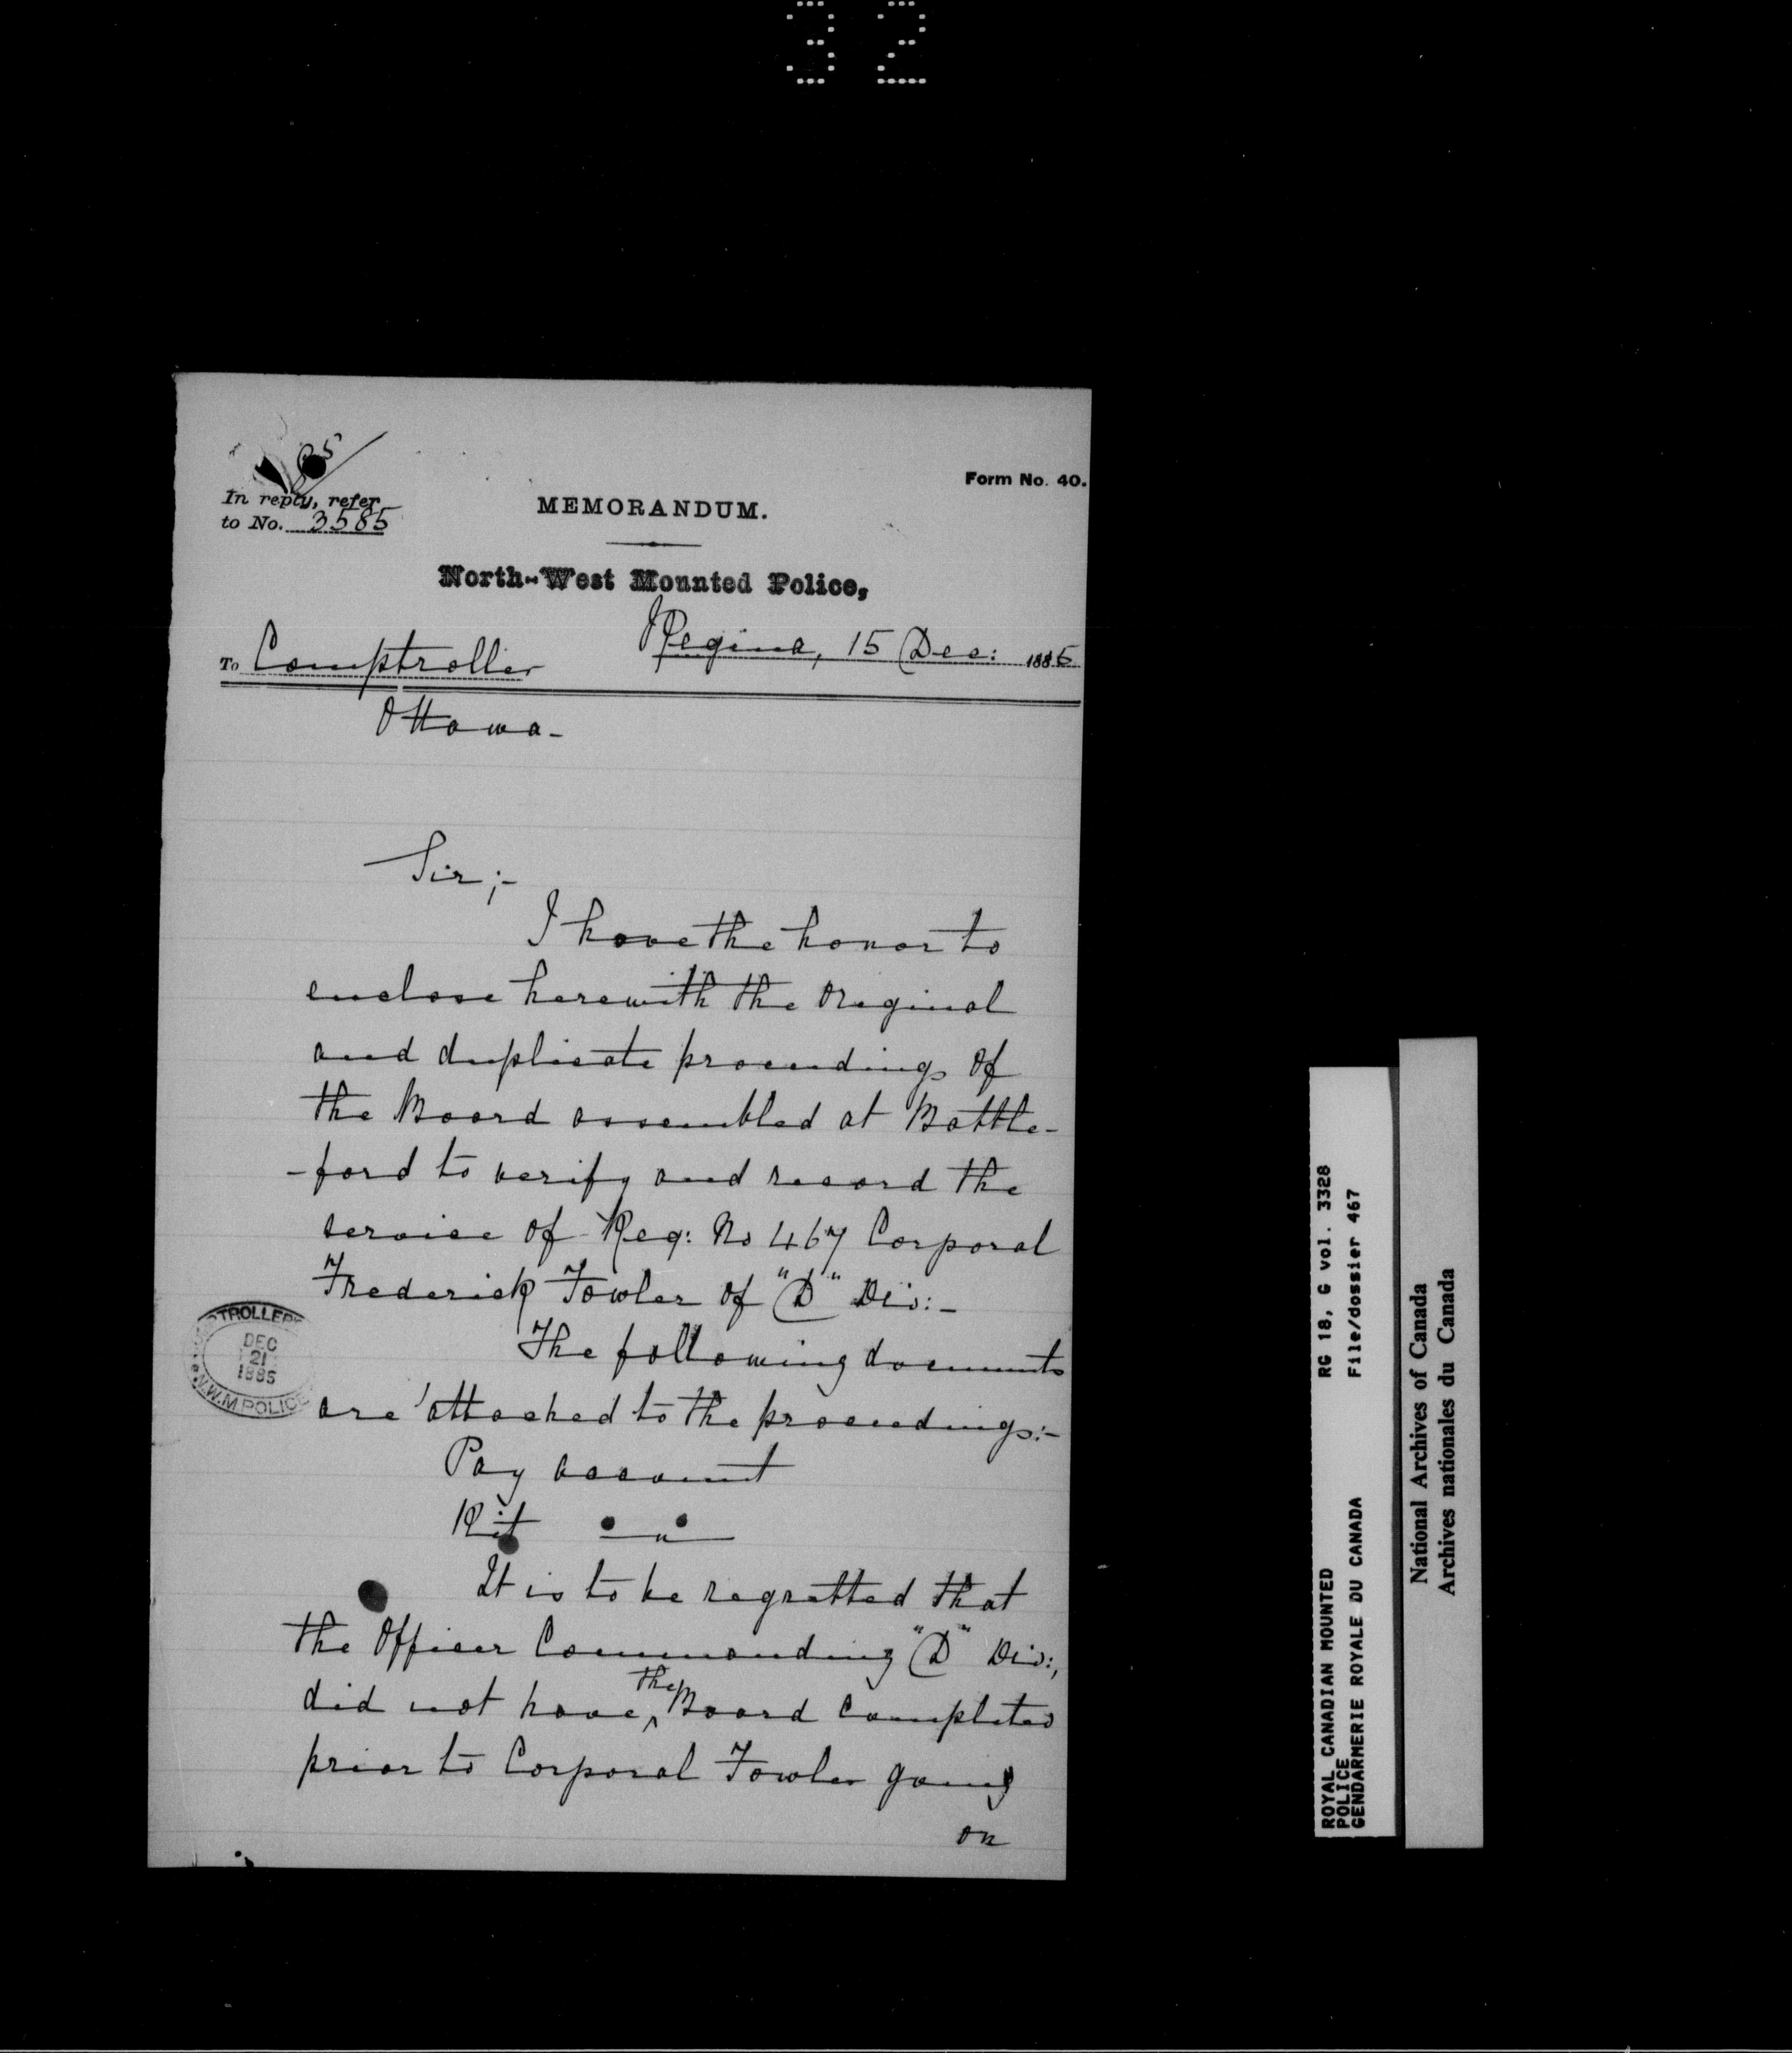 32
85
Form No. 40.
In reply, refer
to No. 3585
MEMORANDUM.
North-West Mounted Police,
Regina, 15 Dec: 1885
To Comptroller
Ottawa-
Sir;-
I have the honor to
enclose herewith the Original
and duplicate proceedings of
the Board assembled at Battle-
-ford to verify and record the
service of Reg: No 467 Corporal
Frederick Fowler of "D" Div:-
The following documents
are attached to the proceedings:-
Pay account
Kit "
It is to be regretted that
the Officer Commanding "D" Div:,
did not have the Board completed
prior to Corporal Fowler going
on
TROLLER
DEC
21
1885
N.W.M. POLICE
ROYAL CANADIAN MOUNTED
POLICE
GENDARMERIE ROYALE DU CANADA
RG 18, G vol. 3328
File/dossier 467
National Archives of Canada
Archives nationales du Canada